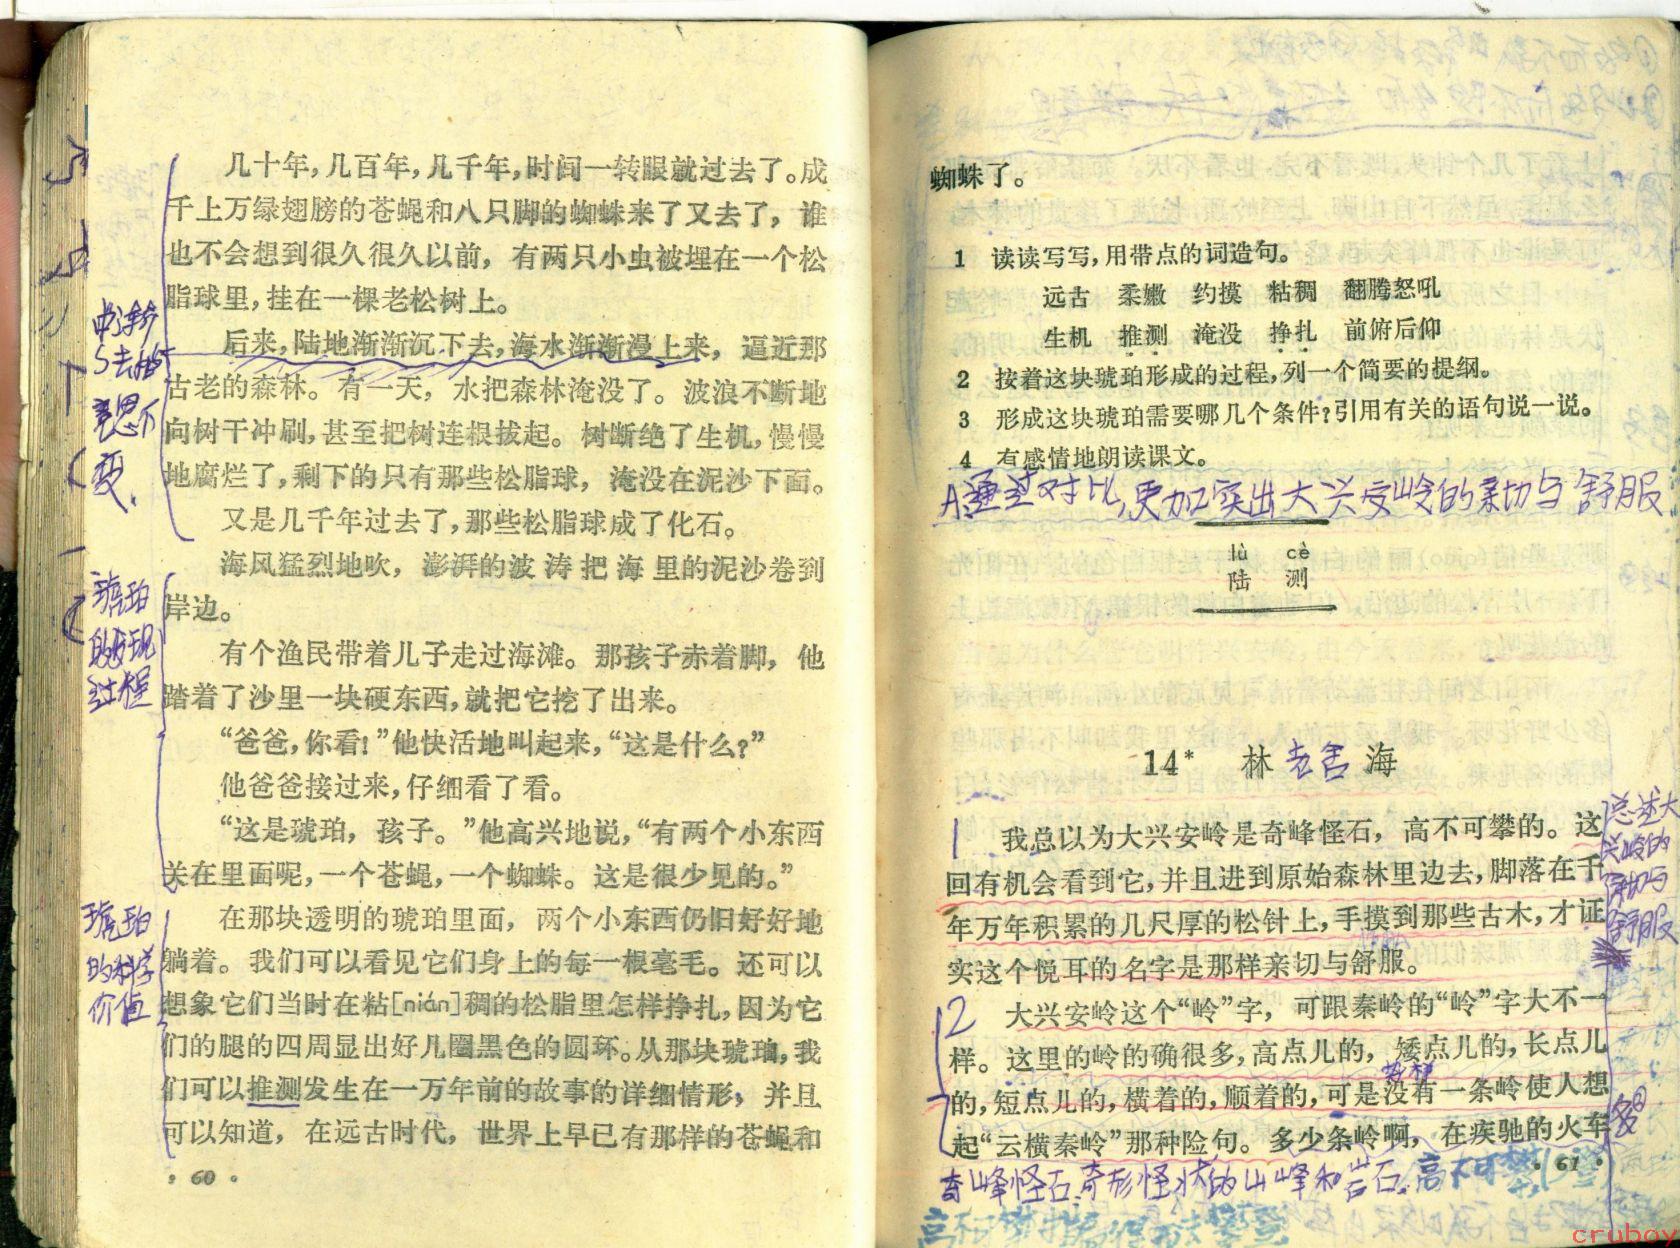 几十年，几百年，几千年，时间一转眼就过去了。成
千上万绿翅膀的苍蝇和八只脚的蜘蛛来了又去了，谁
也不会想到很久很久以前，有两只小虫被埋在一个松
脂球里，挂在一棵老松树上。
后来，陆地渐渐沉下去，海水渐渐漫上来，逼近那
古老的森林。有一天，水把森林淹没了。波浪不断地
向树干冲刷，甚至把树连根拔起。树断绝了生机，慢慢
地腐烂了，剩下的只有那些松脂球，淹没在泥沙下面。
又是几千年过去了，那些松脂球成了化石。
海风猛烈地吹，澎湃的波涛把海里的泥沙卷到
岸边。
有个渔民带着儿子走过海滩。那孩子赤着脚，他
踏着了沙里一块硬东西，就把它挖了出来。
“爸爸，你看！”他快活地叫起来，“这是什么？”
他爸爸接过来，仔细看了看。
“这是琥珀，孩子。”他高兴地说，“有两个小东西
关在里面呢，一个苍蝇，一个蜘蛛。这是很少见的。”
在那块透明的琥珀里面，两个小东西仍旧好好地
躺着。我们可以看见它们身上的每一根毫毛。还可以
想象它们当时在粘[nián]稠的松脂里怎样挣扎，因为它
们的腿的四周显出好几圈黑色的圆环。从那块琥珀，我
们可以推测发生在一万年前的故事的详细情形，并且
可以知道，在远古时代，世界上早已有那样的苍蝇和
·60·
去掉
意思不
变
琥珀
的发现
过程
琥珀
的科学
价值
蜘蛛了。
1 读读写写，用带点的词造句。
远古 柔嫩 约摸 粘稠 翻腾怒吼
生机 推测 淹没 挣扎 前俯后仰
2 按着这块琥珀形成的过程，列一个简要的提纲。
3 形成这块琥珀需要哪几个条件？引用有关的语句说一说。
4 有感情地朗读课文。
A.通过对比，更加突出大兴安岭的亲切与舒服
lù cè
陆 测
14* 林 海
老舍
1
我总以为大兴安岭是奇峰怪石，高不可攀的。这
回有机会看到它，并且进到原始森林里边去，脚落在千
年万年积累的几尺厚的松针上，手摸到那些古木，才证
实这个悦耳的名字是那样亲切与舒服。
2
大兴安岭这个“岭”字，可跟秦岭的“岭”字大不一
样。这里的岭的确很多，高点儿的，矮点儿的，长点儿
的，短点儿的，横着的，顺着的，可是没有一条岭使人想
起“云横秦岭”那种险句。多少条岭啊，在疾驰的火车
·61·
总述大
兴岭的
亲切与
舒服
多
奇峰怪石：奇形怪状的山峰和岩石。高不可攀
cruboy